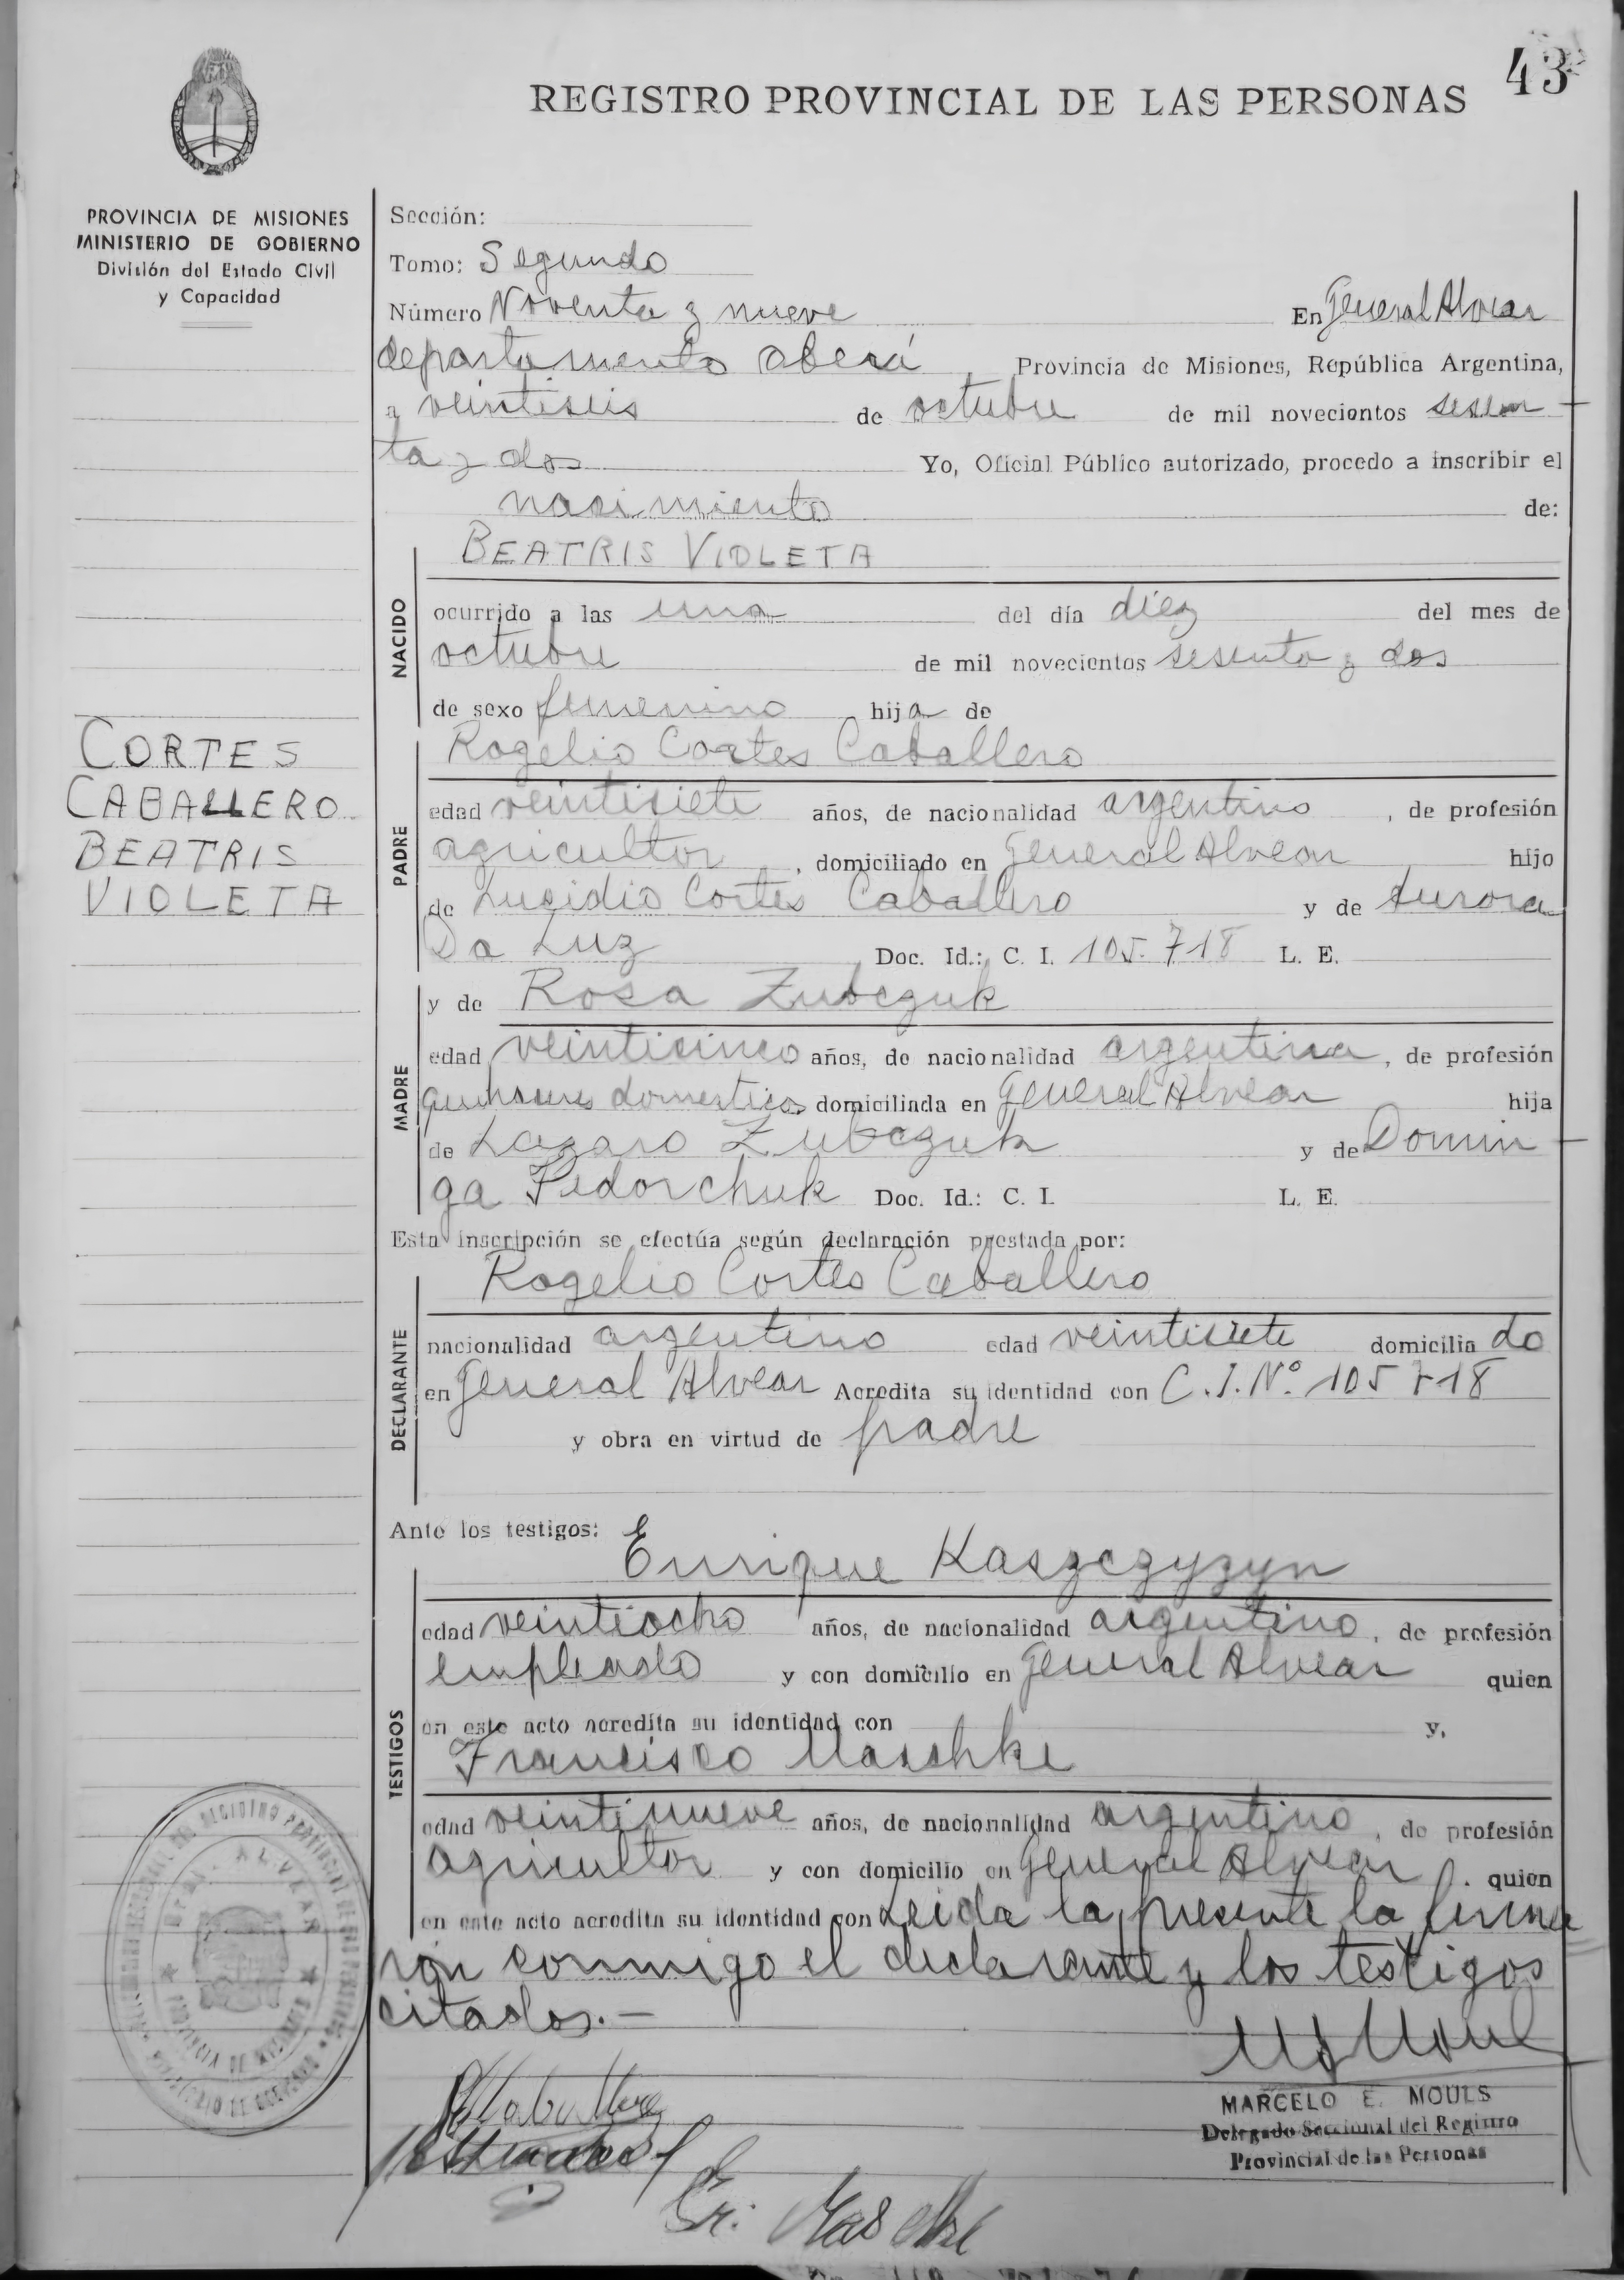 43
REGISTRO PROVINCIAL DE LAS PERSONAS
PROVINCIA DE MISIONES
MINISTERIO DE GOBIERNO
División del Estado Civil
y Capacidad
Sección:
Tomo: Segundo
Número Noventa y nueve En General Alvear
departamento Oberá Provincia de Misiones, República Argentina,
a veintiseis de octubre de mil novecientos sesen
ta y dos Yo, Oficial Público autorizado, procedo a inscribir el
nacimiento de:
BEATRIS VIOLETA
NACIDO
ocurrido a las una del día diez del mes de
octubre de mil novecientos sesenta y dos
de sexo femenino, hija de
CORTES
CABALLERO
BEATRIS
VIOLETA
Rogelio Cortes Caballero
PADRE
edad veintisiete años, de nacionalidad argentino, de profesión
agricultor, domiciliado en General Alvear hijo
de Lucidio Cortes Caballero y de Aurora
Da Luz Doc. Id.: C. I. 105.718 L. E.
y de Rosa Zubczuk
MADRE
edad veinticinco años, de nacionalidad argentina, de profesión
quehaceres domesticos domiciliada en General Alvear hija
de Lazaro Zubczuk y de Domin
ga Fedorchuk Doc. Id.: C. I. L. E.
Esta inscripción se efectúa según declaración prestada por:
Rogelio Cortes Caballero
DECLARANTE
nacionalidad argentino edad veintisiete domicilia do
en General Alvear Acredita su identidad con C.I.Nº 105718
y obra en virtud de padre
Ante los testigos:
Enrique Kaszczyzyn
TESTIGOS
edad veintiocho años, de nacionalidad argentino, de profesión
empleado y con domicilio en General Alvear quien
en este acto acredita su identidad con y,
Francisco Maschke
edad veintinueve años, de nacionalidad argentino, de profesión
agricultor y con domicilio en General Alvear. quien
en este acto acredita su identidad con Leida la presente la firma
ron conmigo el declarante y los testigos
citados.—
MARCELO E. MOULS
Delegado Seccional del Registro
Provincial de las Personas
GRAL. ALVEAR
PROVINCIA DE MISIONES